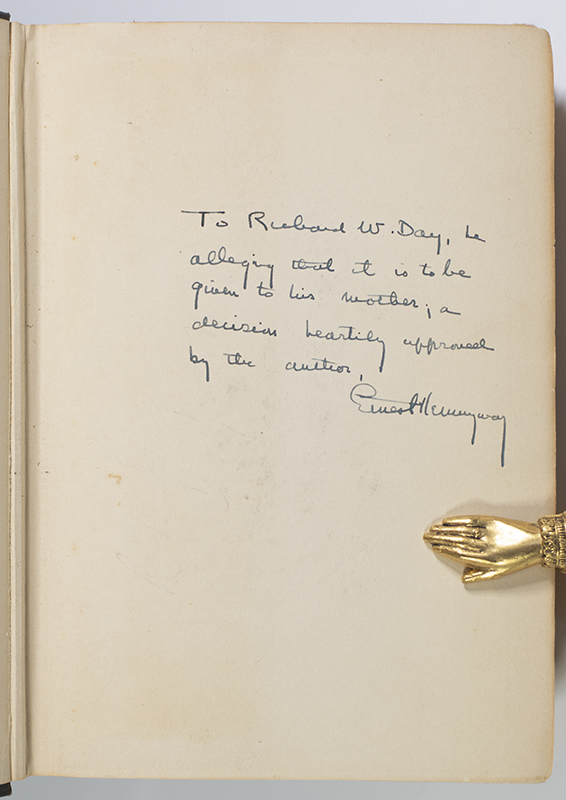 To Richard W. Day, he
alleging that it is to be
given to his mother; a
decision heartily approved
by the author,
Ernest Hemingway